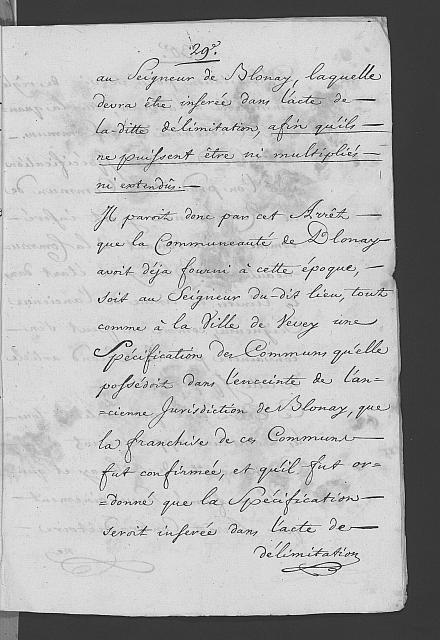 29.e
au Seigneur de Blonay, laquelle
devra être inserée dans l'acte de
la ditte délimitation, afin qu'ils
ne puissent être ni multipliés
ni extendûs.
Il paroit donc par cet Arrêt
que la Communeauté de Blonay
avoit déja fourni à cette époque,
soit au Seigneur du-dit lieu, tout
comme à la Ville de Vevey une
Spécification des Communs qu'elle
possédoit dans l'enceinte de l'an-
=cienne Jurisdiction de Blonay, que
la franchise de ces Communs
fut confirmée, et qu'il fut or-
=donné que la Spécification
seroit inserée dans l'acte de
délimitation